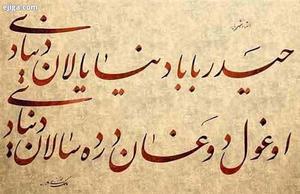 ejiga.com
حیدر بابا دنیا یالان دنیادی
اوغول دوغان درده سالان دنیادی